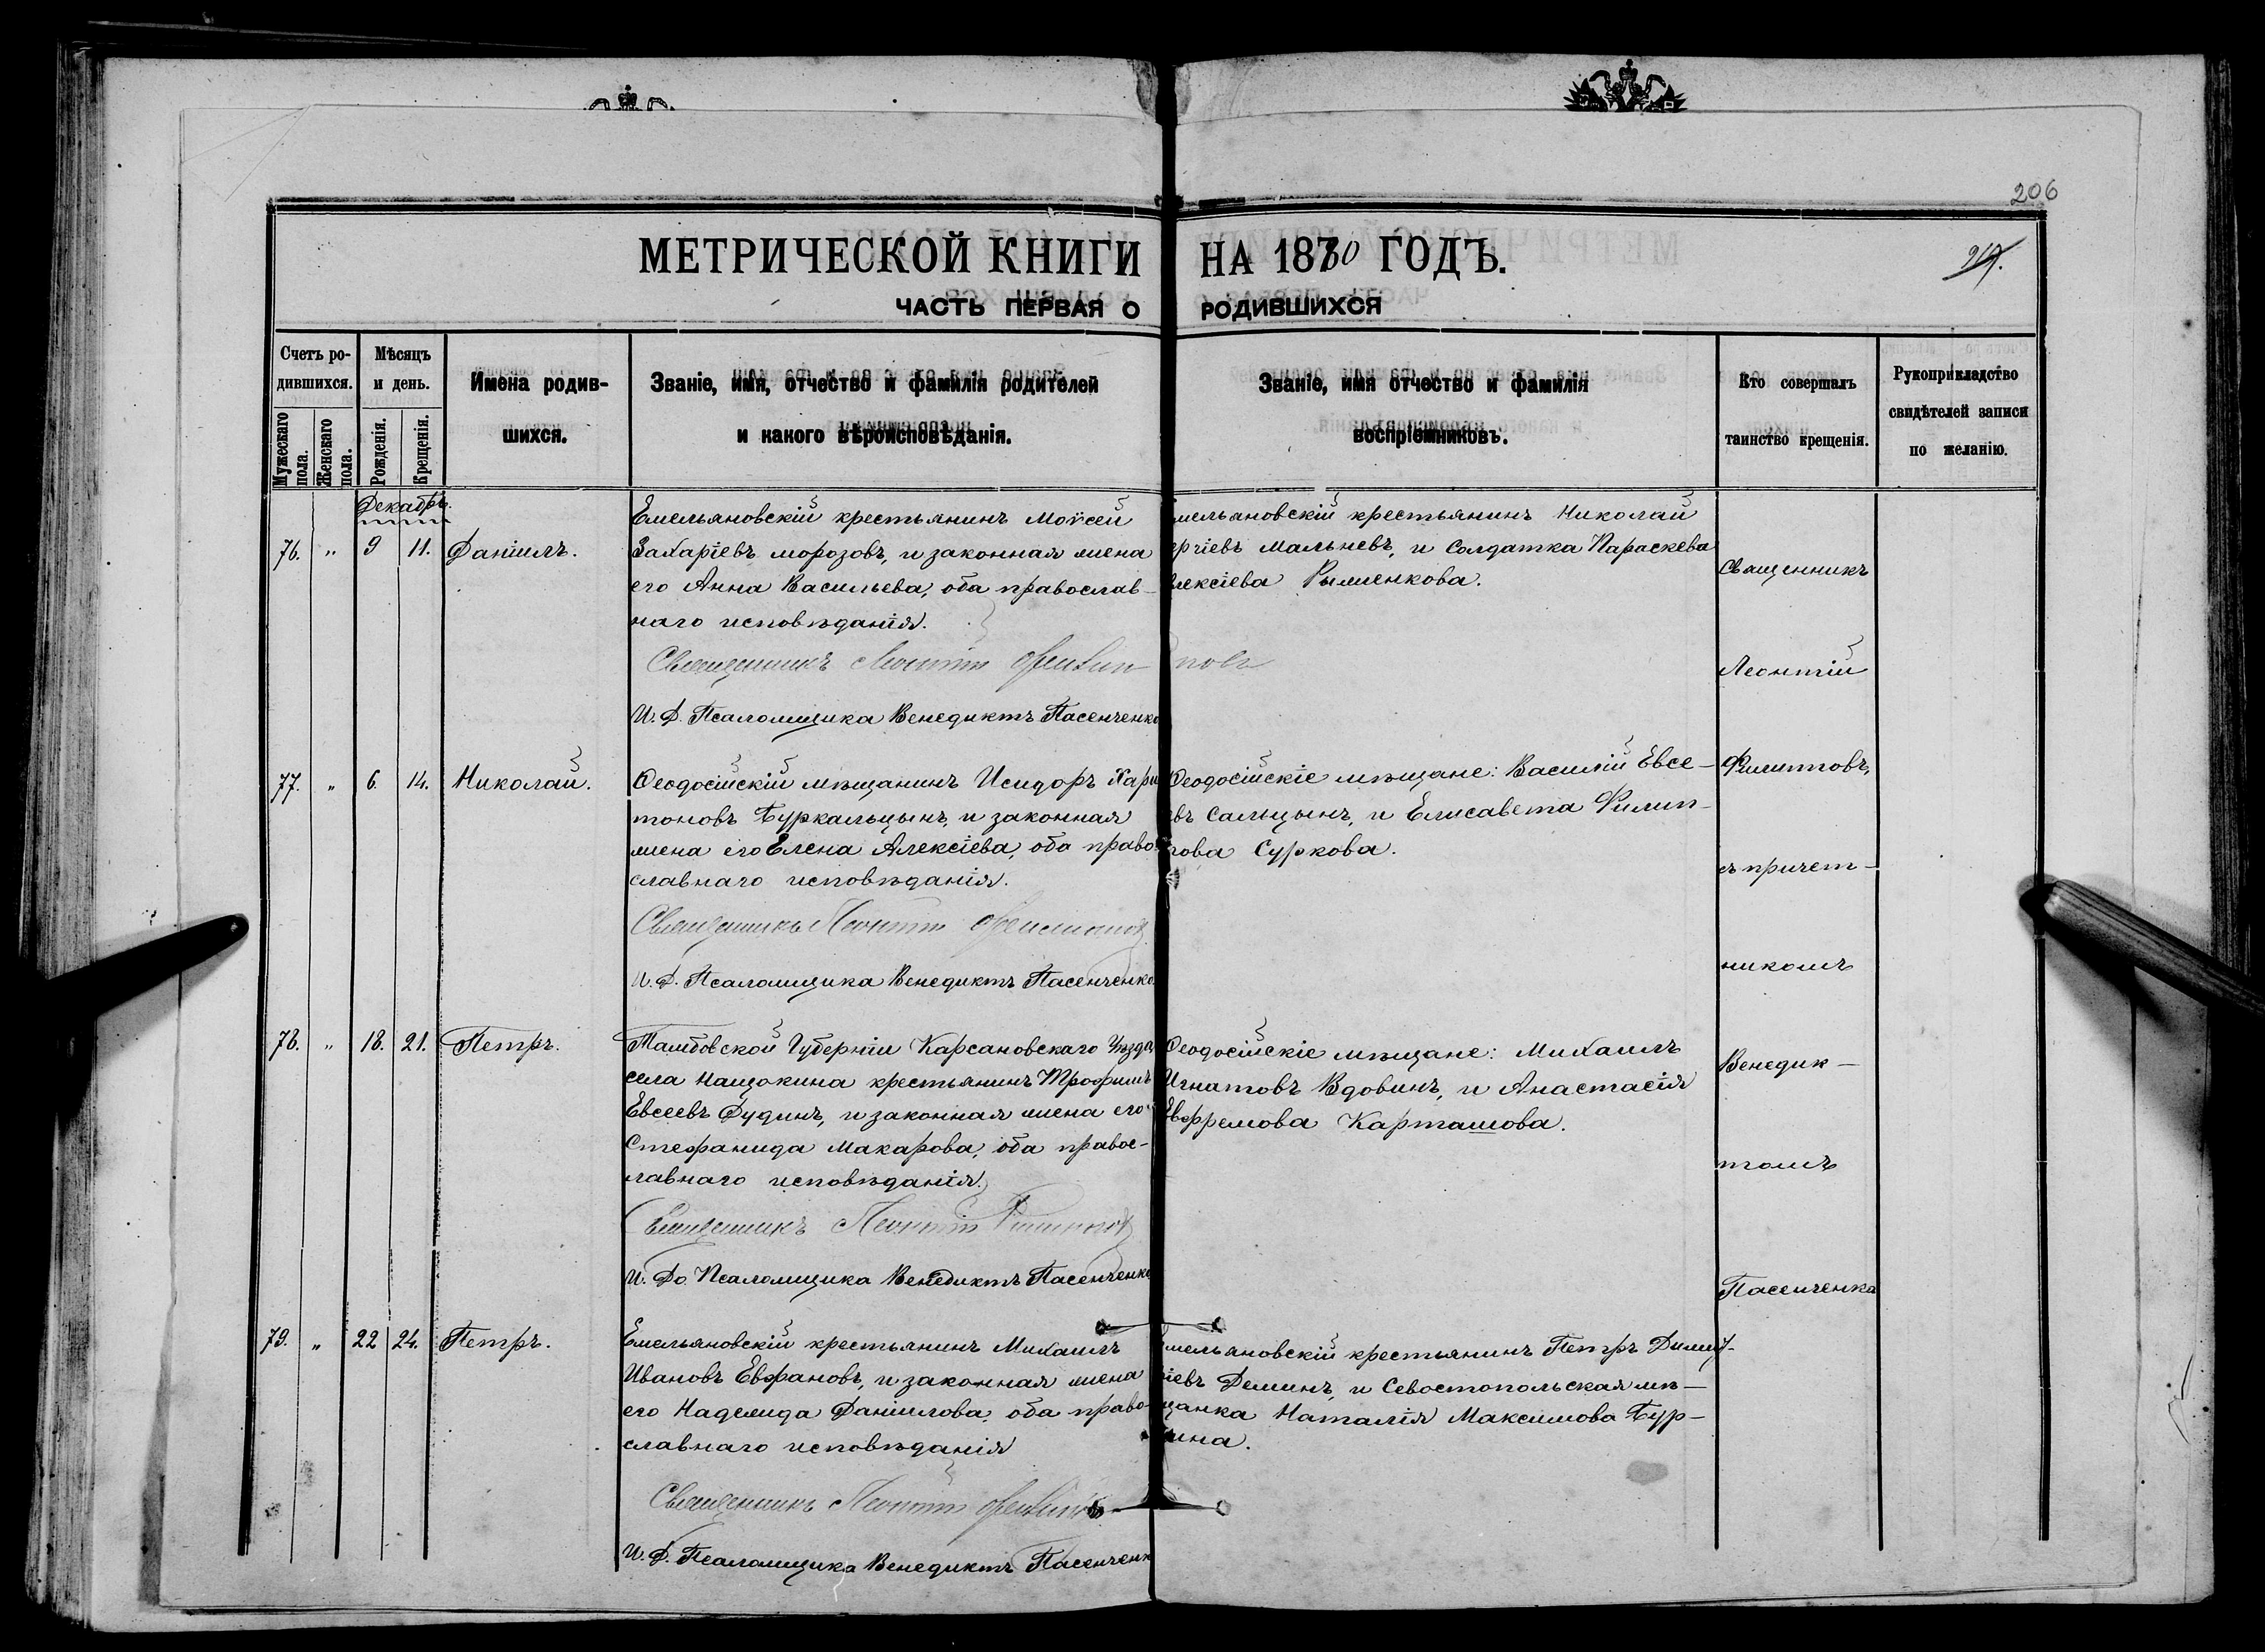 206
МЕТРИЧЕСКОЙ КНИГИ НА 1880 ГОДЪ.
217.
ЧАСТЬ ПЕРВАЯ О РОДИВШИХСЯ
Счетъ ро-
дившихся.
Мужескаго пола.
Женскаго пола.
Мѣсяцъ
и день.
Рожденія.
Крещенія.
Имена родив-
шихся.
Званіе, имя, отчество и фамилія родителей
и какого вѣроисповѣданія.
Званіе, имя отчество и фамилія
воспріемниковъ.
Кто совершалъ
таинство крещенія.
Рукоприкладство
свидѣтелей записи
по желанію.
Декабрь.
76. " 9 11. Даніилъ.
Емельяновскій крестьянинъ Моѵсей
Захаріевъ Морозовъ, и законная жена
его Анна Васильева, оба православ-
наго исповѣданія.
Священникъ Леонтій Филип-повъ
И. Д. Псаломщика Венедиктъ Пасенченко
мельяновскій крестьянинъ Николай
ргіевъ Мальневъ, и солдатка Параскева
лексіева Рыженкова.
77. " 6. 14. Николай.
Ѳеодосійскій мѣщанинъ Исидоръ Хари
тоновъ Буркальцынъ, и законная
жена его Елена Алексіева, оба право-
славнаго исповѣданія.
Священникъ Леонтій Филиповъ
И. Д. Псаломщика Венедиктъ Пасенченко.
Ѳеодосійскіе мѣщане: Василій Евсе-
евъ Сальцынъ, и Елисавета Филип-
пова Суркова.
78. " 18. 21. Петръ.
Тамбовской Губерніи Карсановскаго Уѣзда
села Нащокина крестьянинъ Трофимъ
Евсеевъ Дудинъ, и законная жена его
Стефанида Макарова, оба правос-
лавнаго исповѣданія.
Священникъ Леонтій Филиповъ
И. До. Псаломщика Венедиктъ Пасенченко
Ѳеодосійскіе мѣщане: Михаилъ
Игнатовъ Вдовинъ, и Анастасія
Евфремова Карташова.
79. " 22 24. Петръ.
Емельяновскій крестьянинъ Михаилъ
Ивановъ Евфановъ, и законная жена
его Надежда Даніилова, оба право-
славнаго исповѣданія
Священникъ Леонтій Филиповъ
И. Д. Псаломщика Венедиктъ Пасенченк
мельяновскій крестьянинъ Петръ Димит-
ріевъ Деминъ, и Севостопольская мѣ-
щанка Наталія Максимова Бур-
ина.
Священникъ
Леонтій
Филипповъ,
съ причет-
никомъ
Венедик-
томъ
Пасенченка